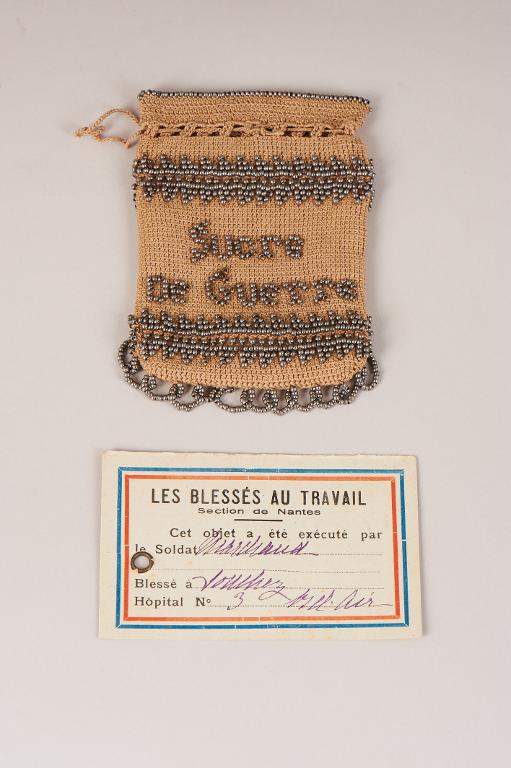 Sucre
De Guerre
LES BLESSÉS AU TRAVAIL
Section de Nantes
Cet objet a été exécuté par
le Soldat Marchand
Blessé à Souchez
Hôpital No 3 Bel-Air